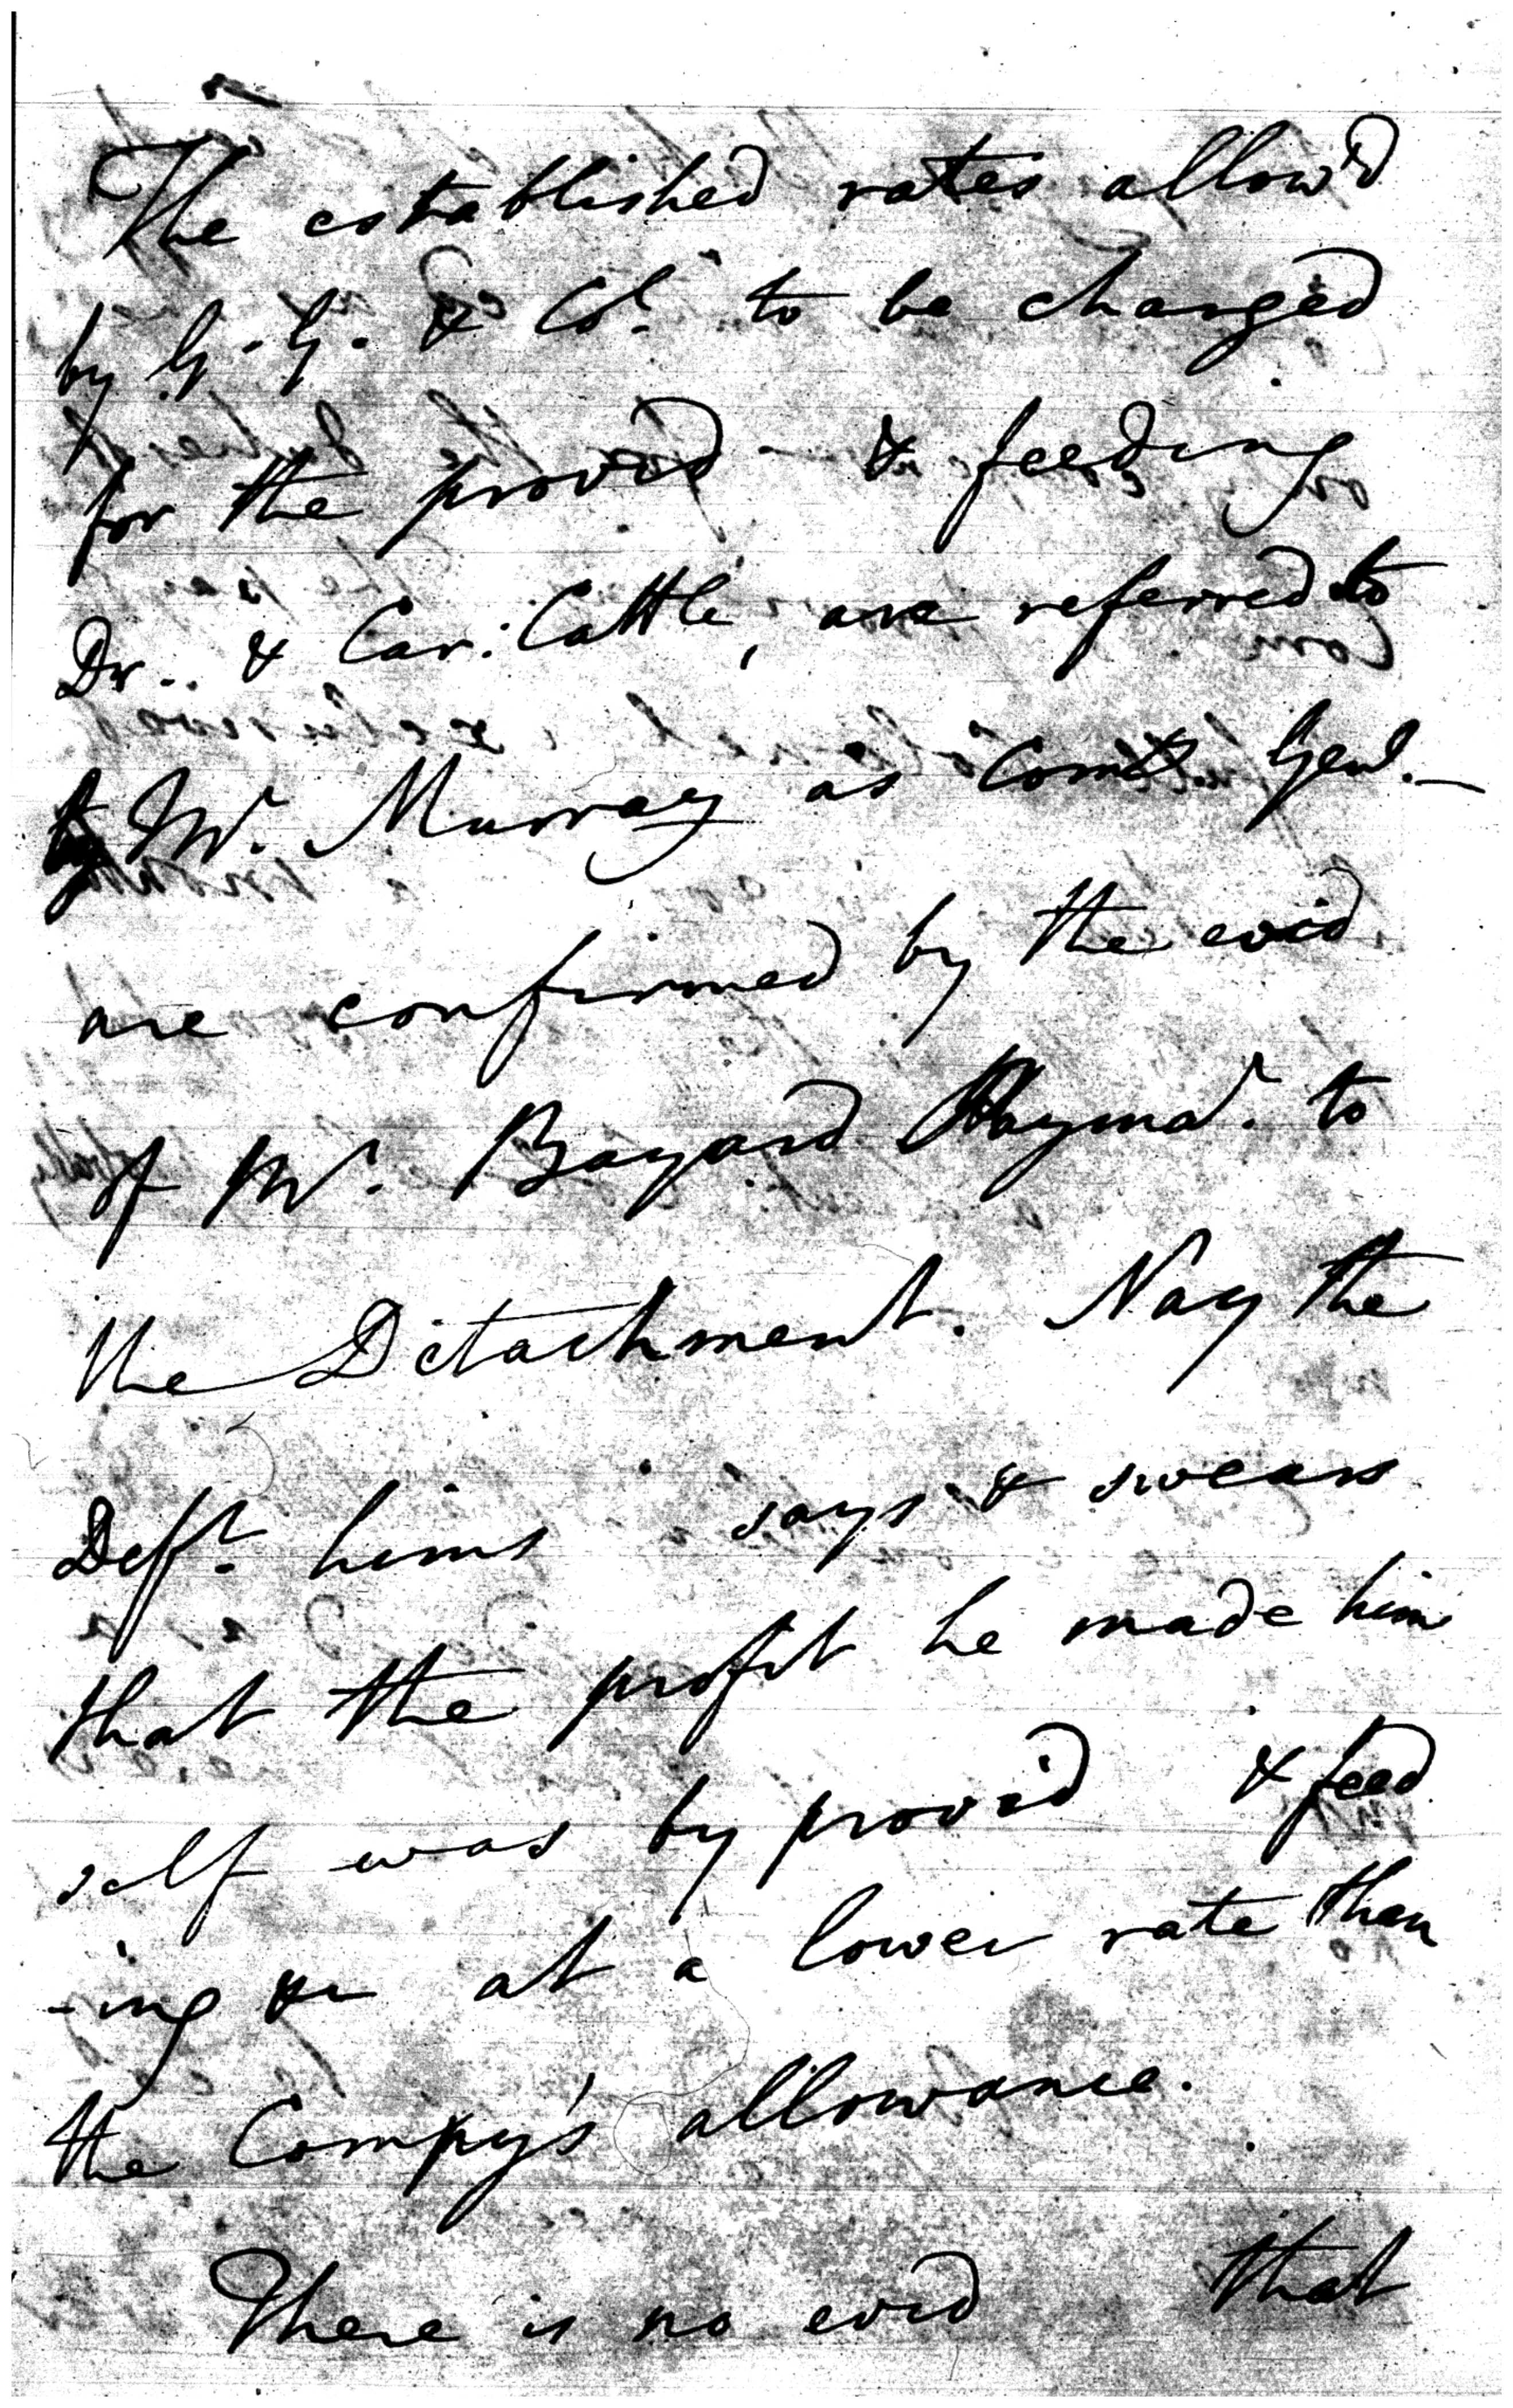 The established rates allow'd
by G. G. & Co. to be charged
for the provid - & feeding
Dr.. & Car: Cattle, are referred to
by Mr. Murray as Comt Genl. —
are confirmed by the evid
of Mr. Bayard Paymar. to
the Detachment. Nay the
Defft. hims says & swears
that the profit he made him
self was by provid & feed
-ing &c at a lower rate than
the Compy's allowance.
There is no evid that